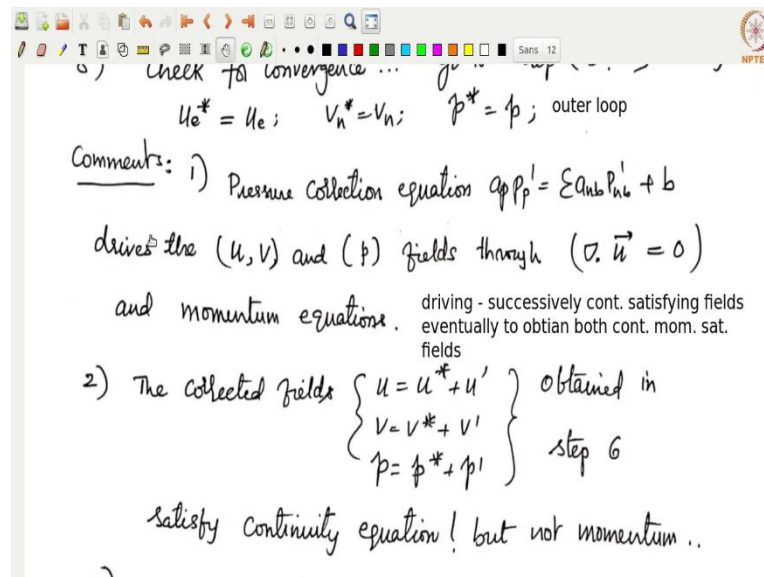 Sans 12
NPTE
Check for convergence ...
uₑ* = uₑ ; vₙ* = vₙ ; p* = p ; outer loop
Comments: 1) Pressure Correction equation aₚ pₚ' = Σ aₙb pₙb' + b
drives the (u, v) and (p) fields through (∇. u⃗ = 0)
and momentum equations. driving - successively cont. satisfying fields
eventually to obtian both cont. mom. sat.
fields
2) The corrected fields { u = u* + u' } obtained in
v = v* + v'
step 6
p = p* + p'
satisfy continuity equation! but not momentum ..